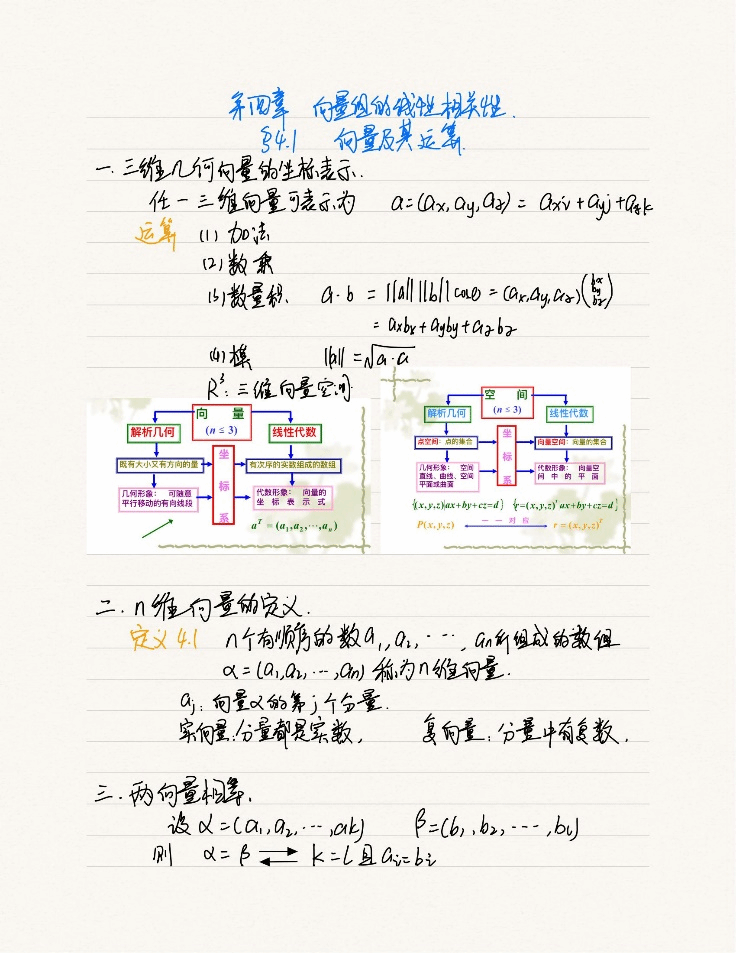 第四章 向量组的线性相关性.
§4.1 向量及其运算.
一.三维几何向量的坐标表示.
任一三维向量可表示为 a=(ax,ay,az) = axi+ayj+azk
运算 (1) 加法
(2) 数乘
(3) 数量积. a·b = ||a|| ||b|| cosθ = (ax,ay,az)(bx by bz)
= axbx+ayby+azbz
(4) 模 ||a|| = √a·a
R³:三维向量空间
向 量
(n ≤ 3)
解析几何 线性代数
坐标系
既有大小又有方向的量 有次序的实数组成的数组
几何形象: 可随意
平行移动的有向线段
代数形象: 向量的
坐标表示式
aᵀ = (a₁,a₂,⋯,aₙ)
空 间
(n ≤ 3)
解析几何 线性代数
坐标系
点空间:点的集合 向量空间:向量的集合
几何形象: 空间
直线、曲线、空间
平面或曲面
代数形象: 向量空
间中的平面
{(x,y,z)|ax+by+cz=d} {r=(x,y,z)ᵀ|ax+by+cz=d}
P(x,y,z) 一一对应 r=(x,y,z)ᵀ
二.n维向量的定义.
定义4.1 n个有顺序的数a₁,a₂,⋯,an所组成的数组
α=(a₁,a₂,⋯,an) 称为n维向量.
aj:向量α的第j个分量.
实向量:分量都是实数, 复向量:分量中有复数.
三.两向量相等.
设 α=(a₁,a₂,⋯,ak) β=(b₁,b₂,⋯,bl)
则 α=β ⇄ k=l且ai=bi